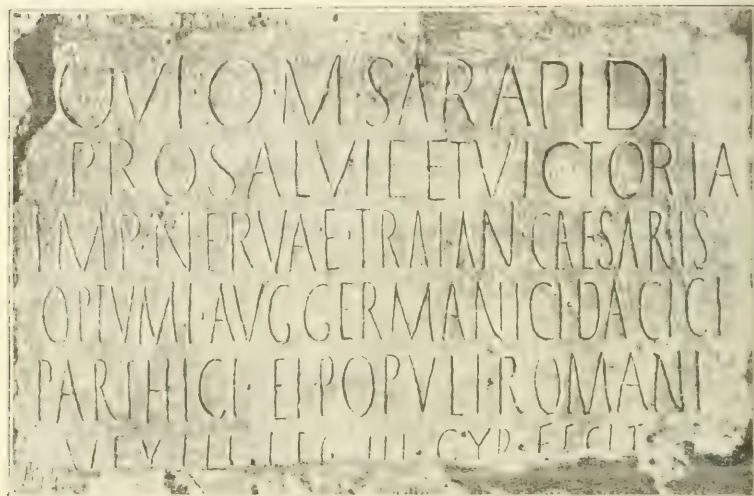 OVI·O·M·SARAPIDI
PRO SALVTE ET VICTORIA
IMP·NERVAE·TRAIANI CAESARIS
OPTVMI·AVG GERMANICI·DACICI
PARTHICI·ET·POPVLI·ROMANI
VEXILL·LEG·III·CYR·FECIT